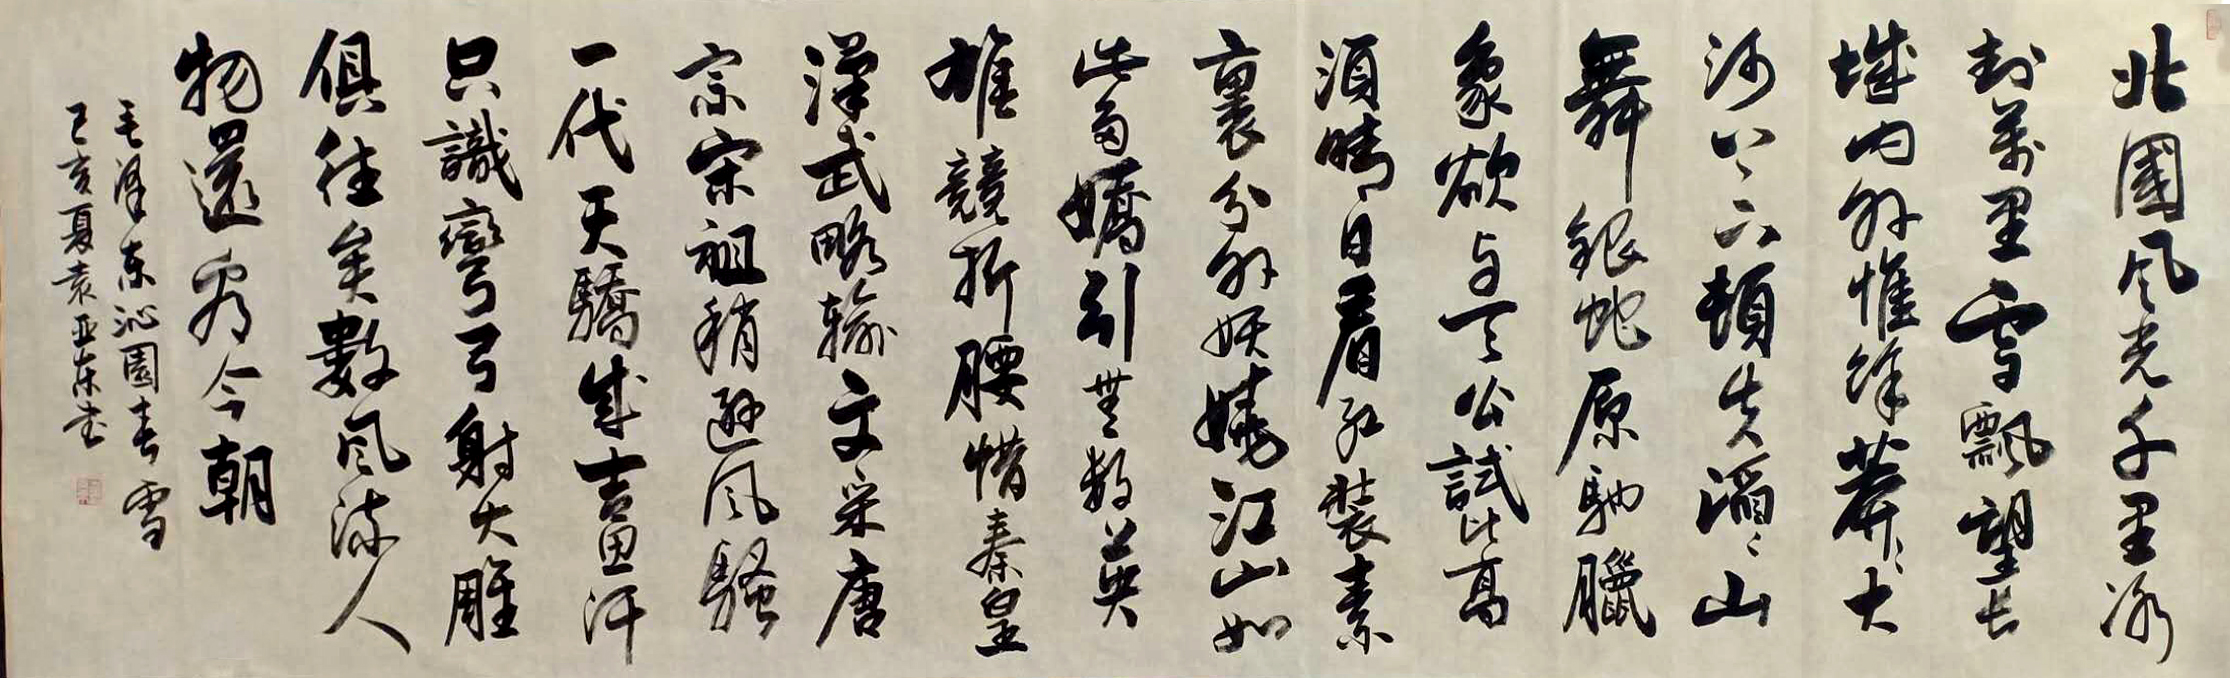 北國风光千里冰
封萬里雪飄望长
城内外惟馀莽〻大
河上下頓失滔〻山
舞銀蛇原馳臘
象欲与天公試比高
須晴日看红裝素
裹分外妖嬈江山如
此多嬌引無数英
雄競折腰惜秦皇
漢武略輸文采唐
宗宋祖稍逊風騷
一代天驕成吉思汗
只識彎弓射大雕
俱往矣數风流人
物還看今朝
毛泽东沁園春雪
己亥夏袁亚东书